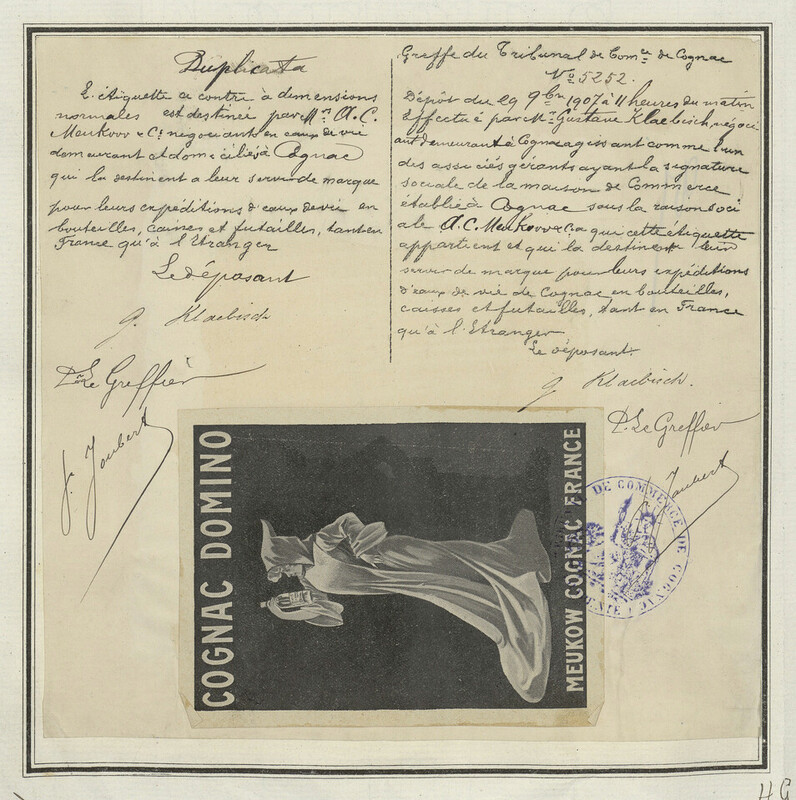 Duplicata
L'étiquette ci contre à dimensions
normales est destinée par Mrs A.C.
Meukow & Cie négociant en eaux de vie
demeurant et domiciliés à Cognac
qui la destinent a leur servir de marque
pour leurs expéditions d'eaux de vie en
bouteilles, caisses et futailles, tant en
France qu'à l'Etranger
Le déposant
G. Klaebisch
Le Greffier
J. Joubert
Greffe du Tribunal de Comce de Cognac
No 5252.
Dépôt du 29 9bre 1907 à 11 heures du matin
Effectué par Mr Gustave Klaebisch, négoci
ant demeurant à Cognac agissant comme l'un
des associés gérants ayant la signature
sociale de la maison de Commerce
établie à Cognac sous la raison soci
ale A.C. Meukow & Ca qui cette étiquette
appartient et qui la destinent leur
servir de marque pour leurs expéditions
d'eaux de vie de Cognac en bouteilles,
caisses et futailles, tant en France
qu'à l'Etranger
Le déposant.
G. Klaebisch.
Le Greffier
J. Joubert
COGNAC DOMINO
MEUKOW COGNAC FRANCE
DE COMMERCE DE COGNAC
HG